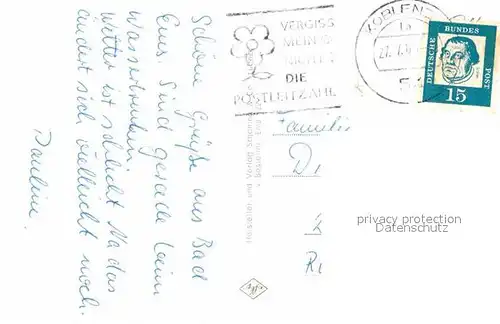 Schöne Grüße aus Bad
Ems. Sind gerade beim
wassertrinken.
wetter ist schlecht. Na das
ändert sich vielleicht noch.
Pauline.
VERGISS
MEIN
NICHT
DIE
POSTLEITZAHL
KOBLENZ
DEUTSCHE BUNDES POST
15
Familie
D
R
privacy protection
Datenschutz